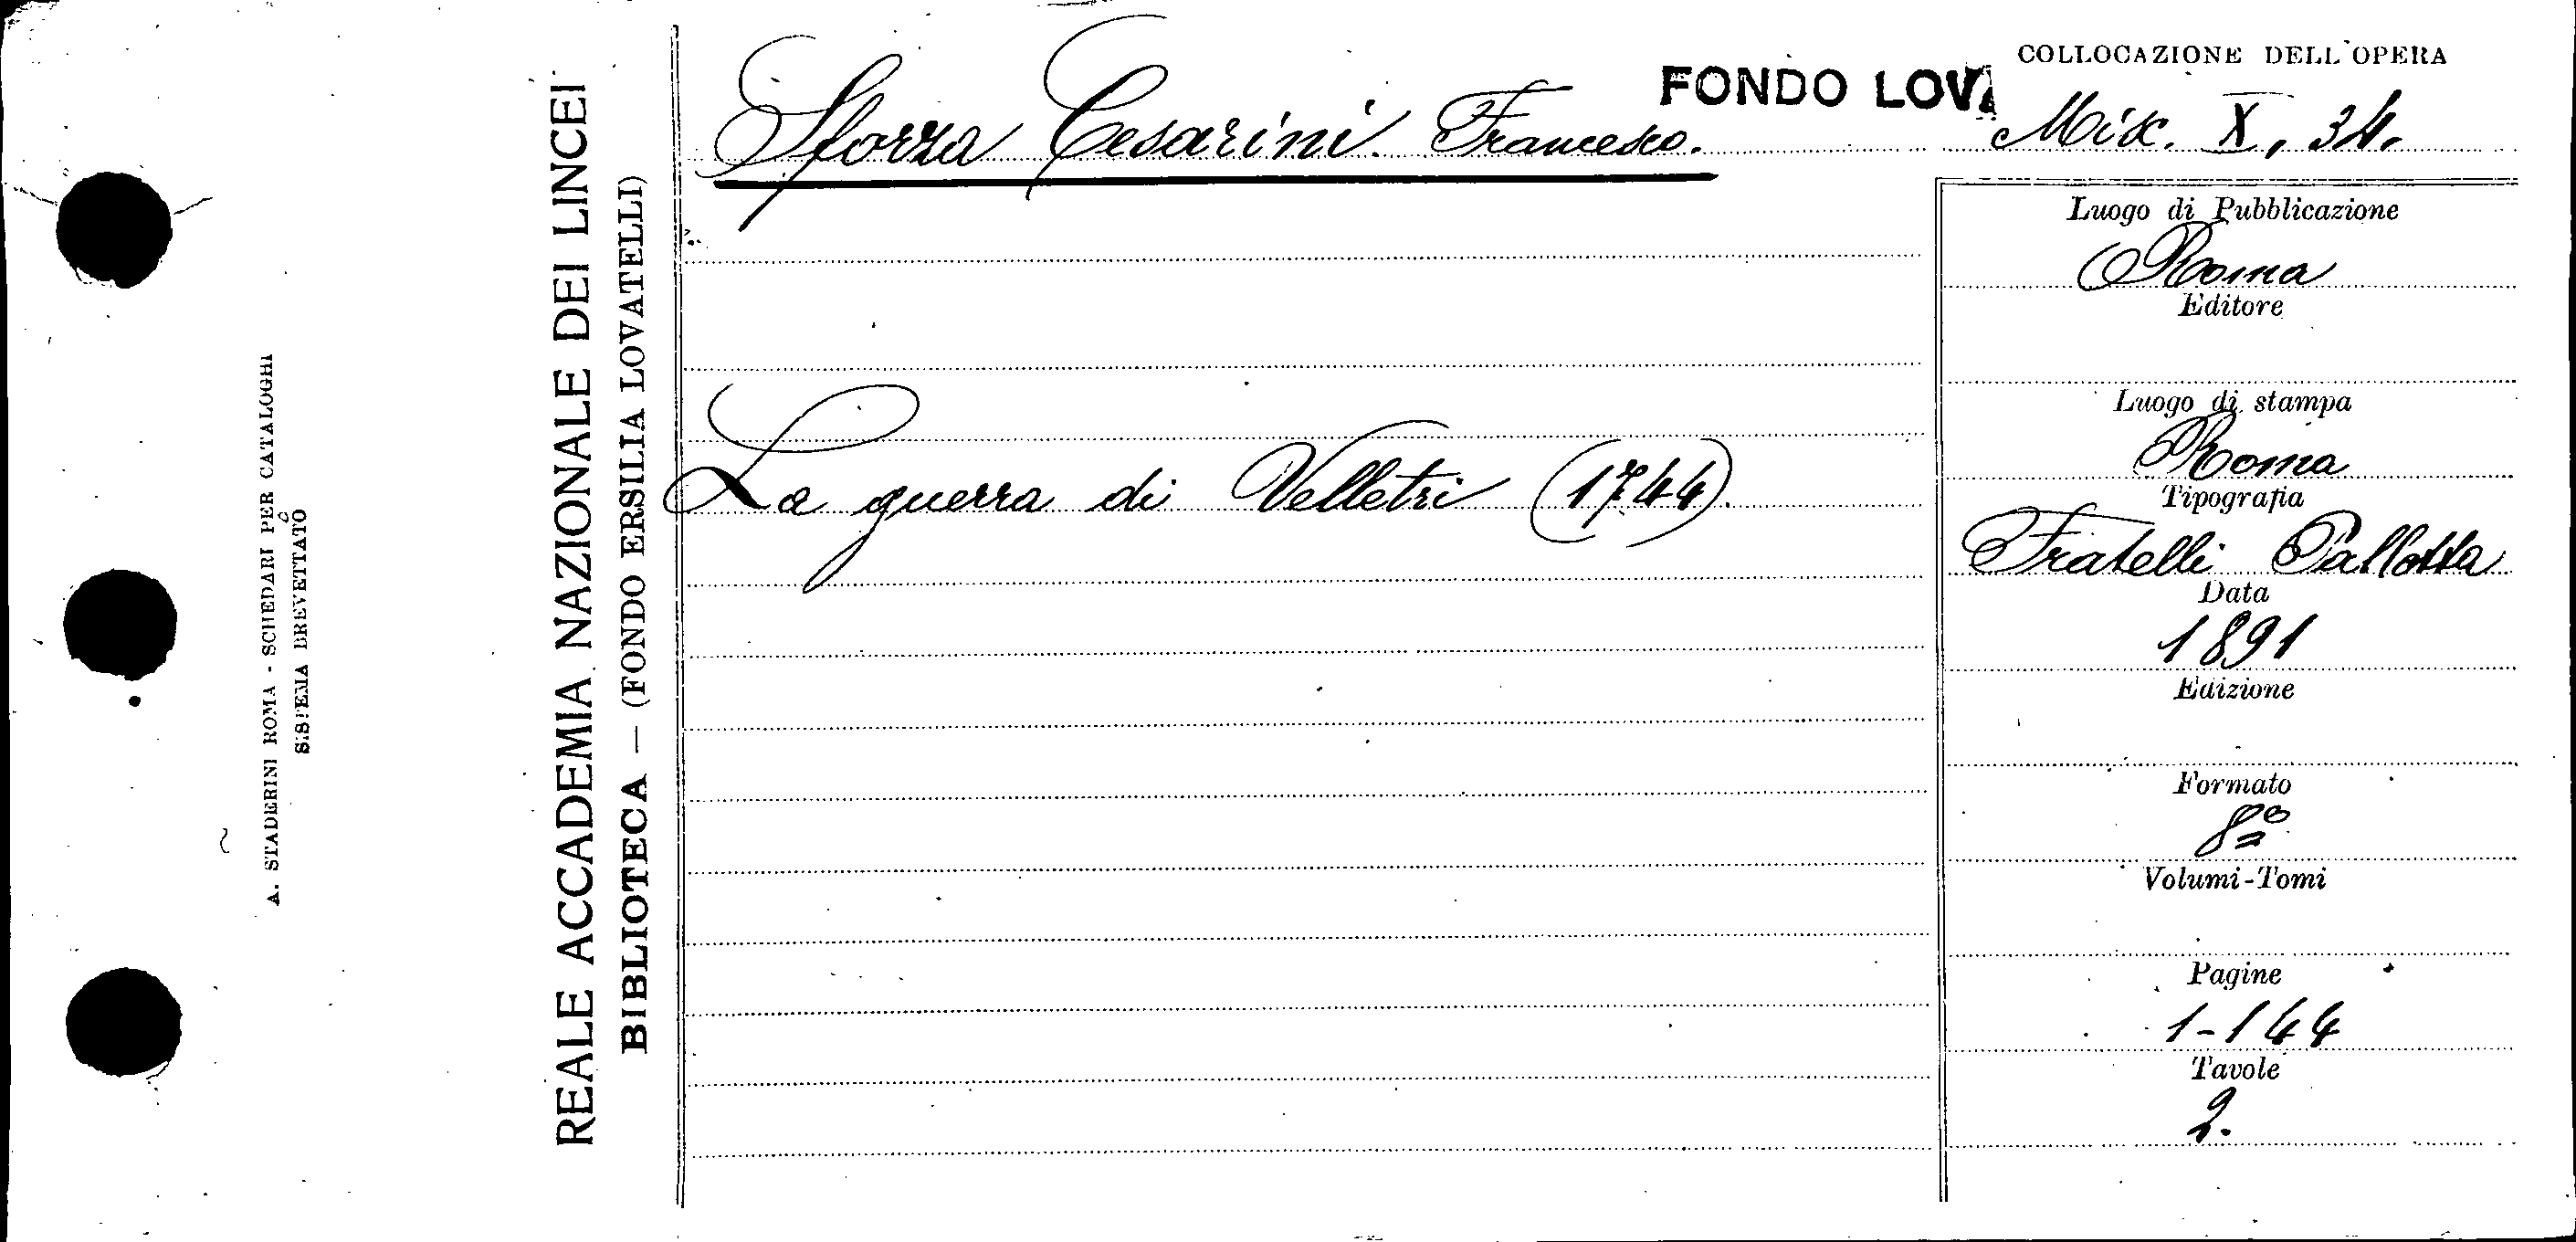 A. STADERINI ROMA - SCHEDARI PER CATALOGHI
SISTEMA BREVETTATO
REALE ACCADEMIA NAZIONALE DEI LINCEI
BIBLIOTECA — (FONDO ERSILIA LOVATELLI)
Sforza Cesarini Francesco.
FONDO LOVA
La guerra di Velletri (1744).
COLLOCAZIONE DELL'OPERA
Misc. X, 34.
Luogo di Pubblicazione
Roma
Editore
Luogo di stampa
Roma
Tipografia
Fratelli Pallotta
Data
1891
Edizione
Formato
8º
Volumi-Tomi
Pagine
1-144
Tavole
2.